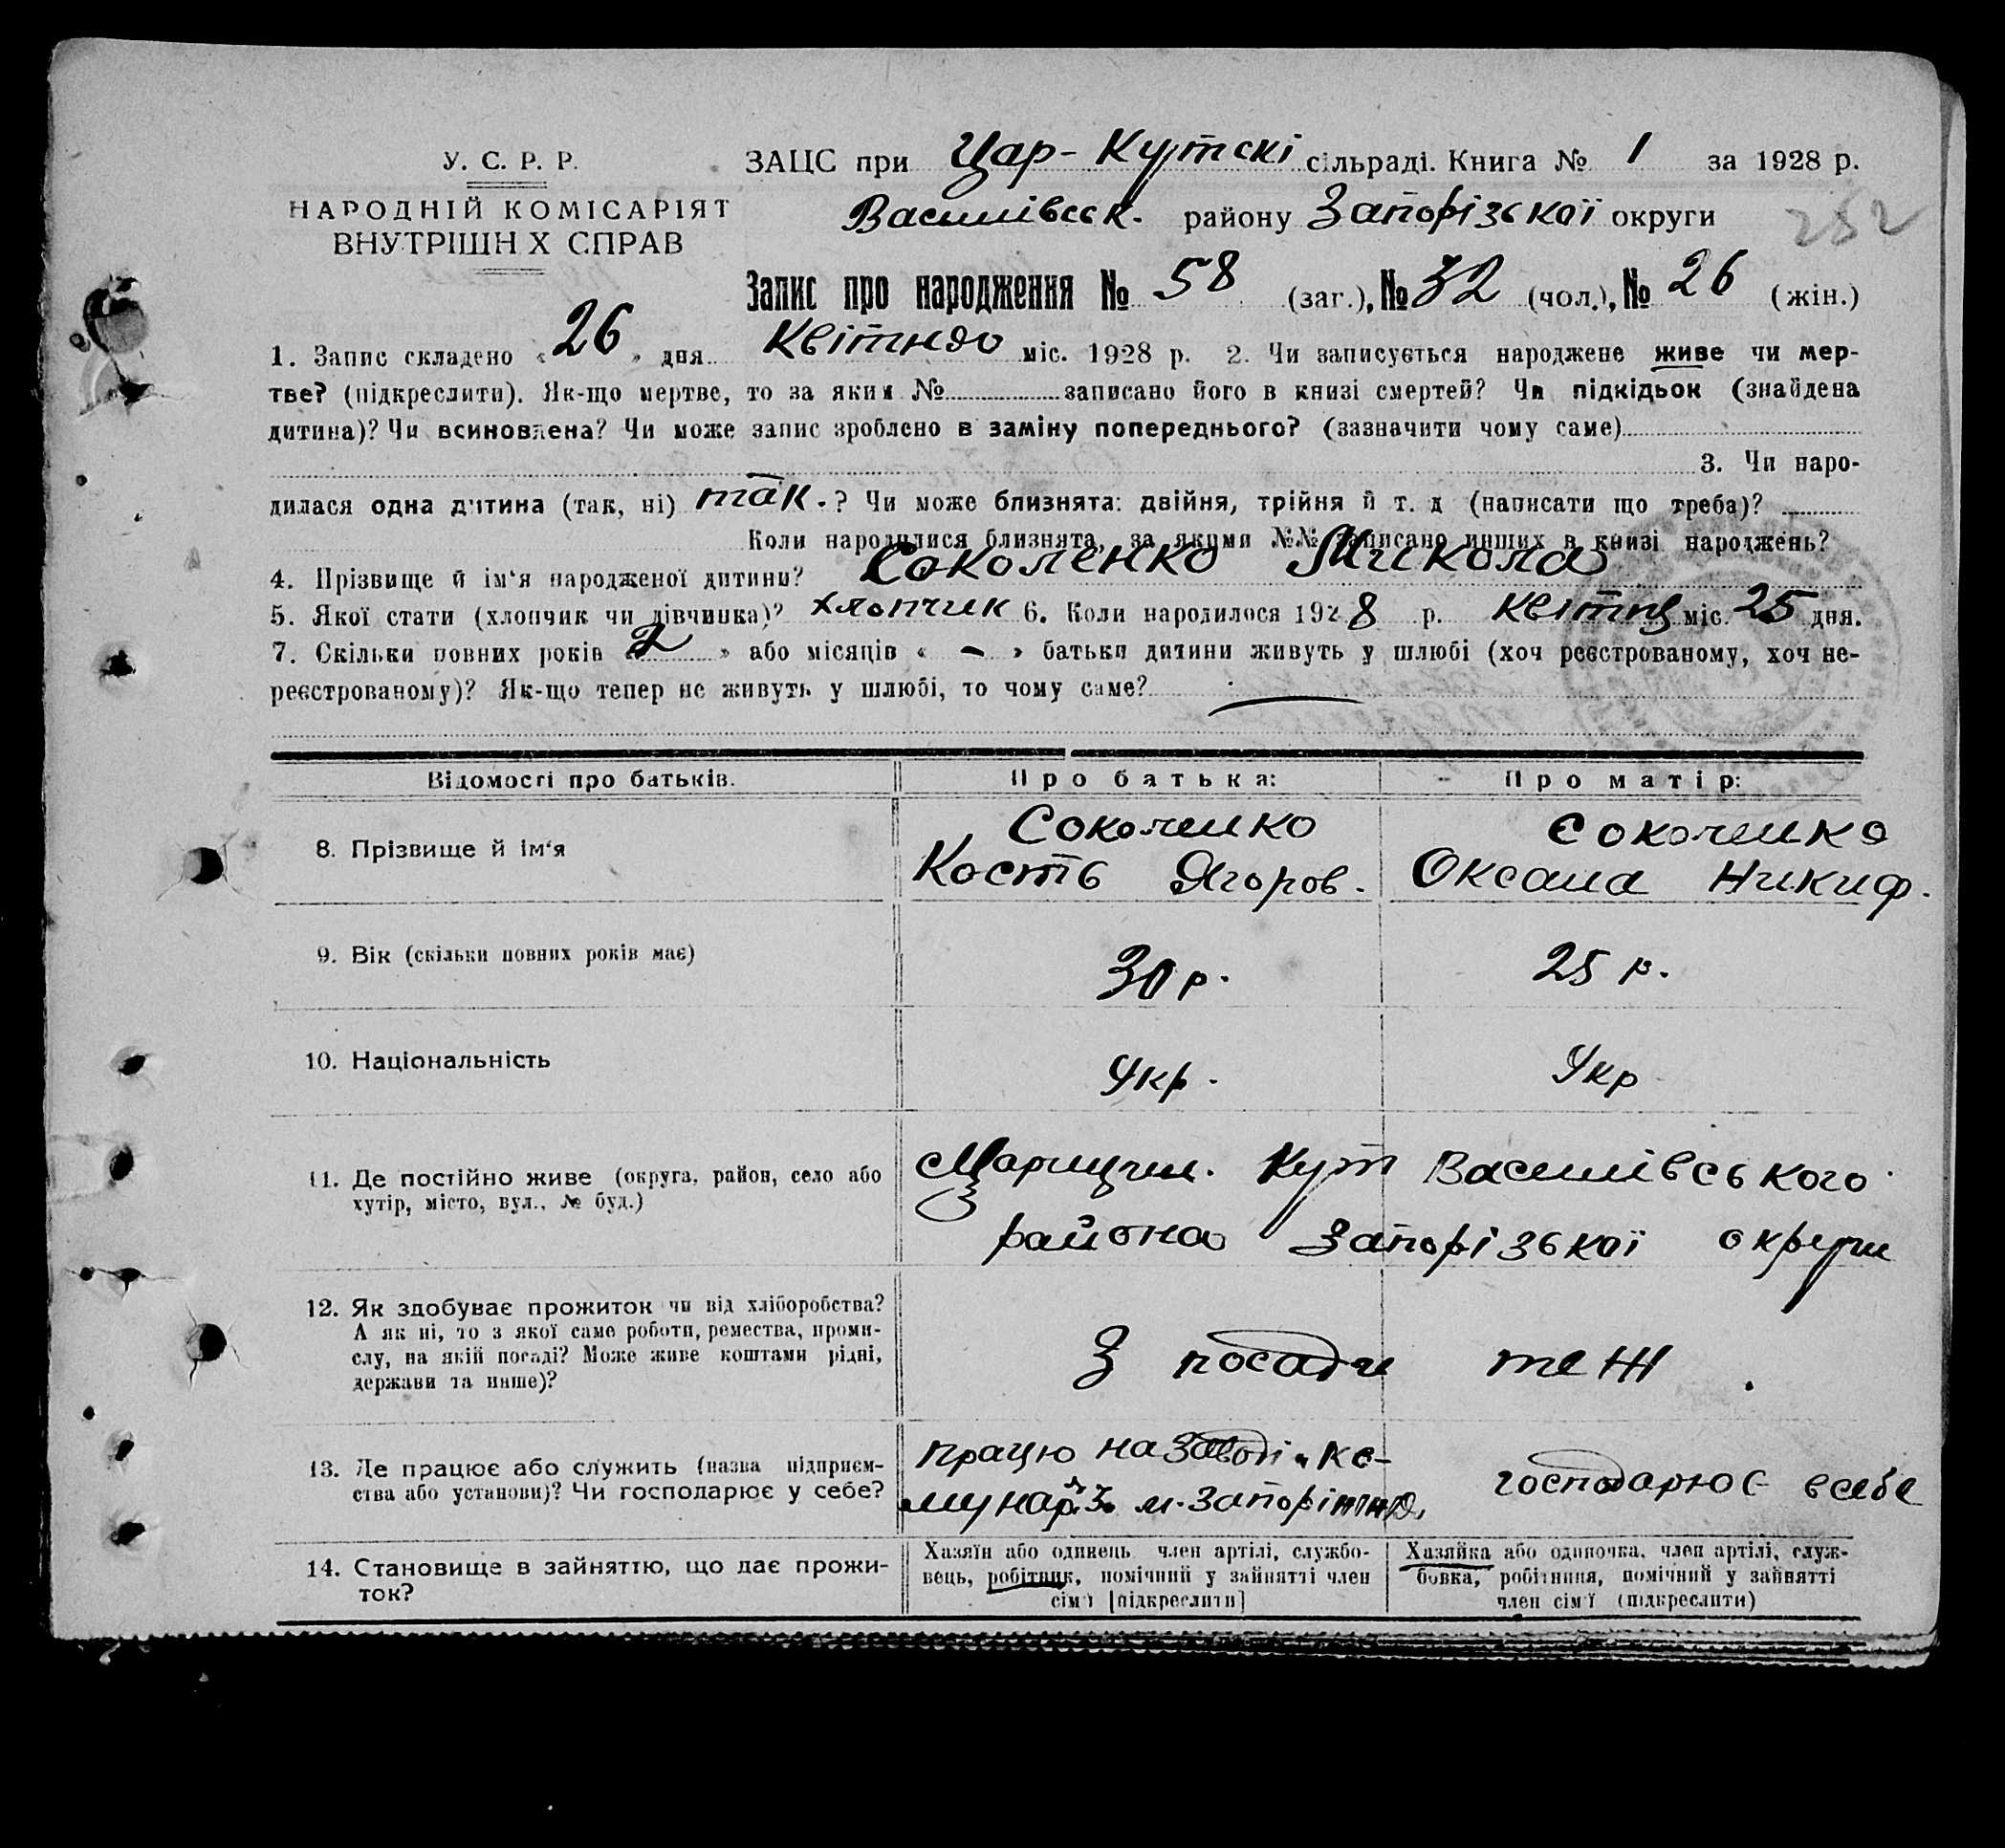 У. С. Р. Р.
НАРОДНІЙ КОМІСАРІЯТ
ВНУТРІШН Х СПРАВ
ЗАЦС при Цар-Кутскі сільраді. Книга № 1 за 1928 р.
Василівськ. району Запорізької округи
252
Запис про народження № 58 (заг.), № 32 (чол.), № 26 (жін.)
1. Запис складено « 26 » дня Квітня міс. 1928 р. 2. Чи записується народжене живе чи мер-
тве? (підкреслити). Як-що мертве, то за яким № записано його в книзі смертей? Чи підкідьок (знайдена
дитина)? Чи всиновлена? Чи може запис зроблено в заміну попереднього? (зазначити чому саме)
3. Чи наро-
дилася одна дитина (так, ні) так. ? Чи може близнята: двійня, трійня й т. д (написати що треба)?
Коли народилися близнята, за якими №№ записано инших в книзі народжень?
4. Прізвище й ім'я народженої дитини? Соколенко Микола
5. Якої стати (хлопчик чи дівчинка)? хлопчик 6. Коли народилося 1928 р. квітня міс. 25 дня.
7. Скільки повних років « 2 » або місяців « - » батьки дитини живуть у шлюбі (хоч реєстрованому, хоч не-
реєстрованому)? Як-що тепер не живуть у шлюбі, то чому саме?
Відомості про батьків. Про батька: Про матір:
8. Прізвище й ім'я
Соколенко
Кость Ягоров.
Соколенко
Оксана Никиф.
9. Вік (скільки повних років має) 30 р. 25 р.
10. Національність Укр. Укр
11. Де постійно живе (округа, район, село або
хутір, місто, вул., № буд.)
Царицин. Кут Василівського
района Запорізької округи
12. Як здобуває прожиток чи від хліборобства?
А як ні, то з якої саме роботи, ремества, проми-
слу, на якій посаді? Може живе коштами рідні,
держави та инше)?
З посади теж.
13. Де працює або служить (назва підприєм-
ства або установи)? Чи господарює у себе?
працю на заводі „Ко-
мунар" м. Запоріжжя
господарює в себе
14. Становище в зайняттю, що дає прожи-
ток?
Хазяїн або одинець, член артілі, службо-
вець, робітник, помічний у зайнятті член
сім'ї [підкреслити]
Хазяйка або одиночка, член артілі, служ-
бовка, робітниця, помічний у зайнятті
член сім'ї (підкреслити)